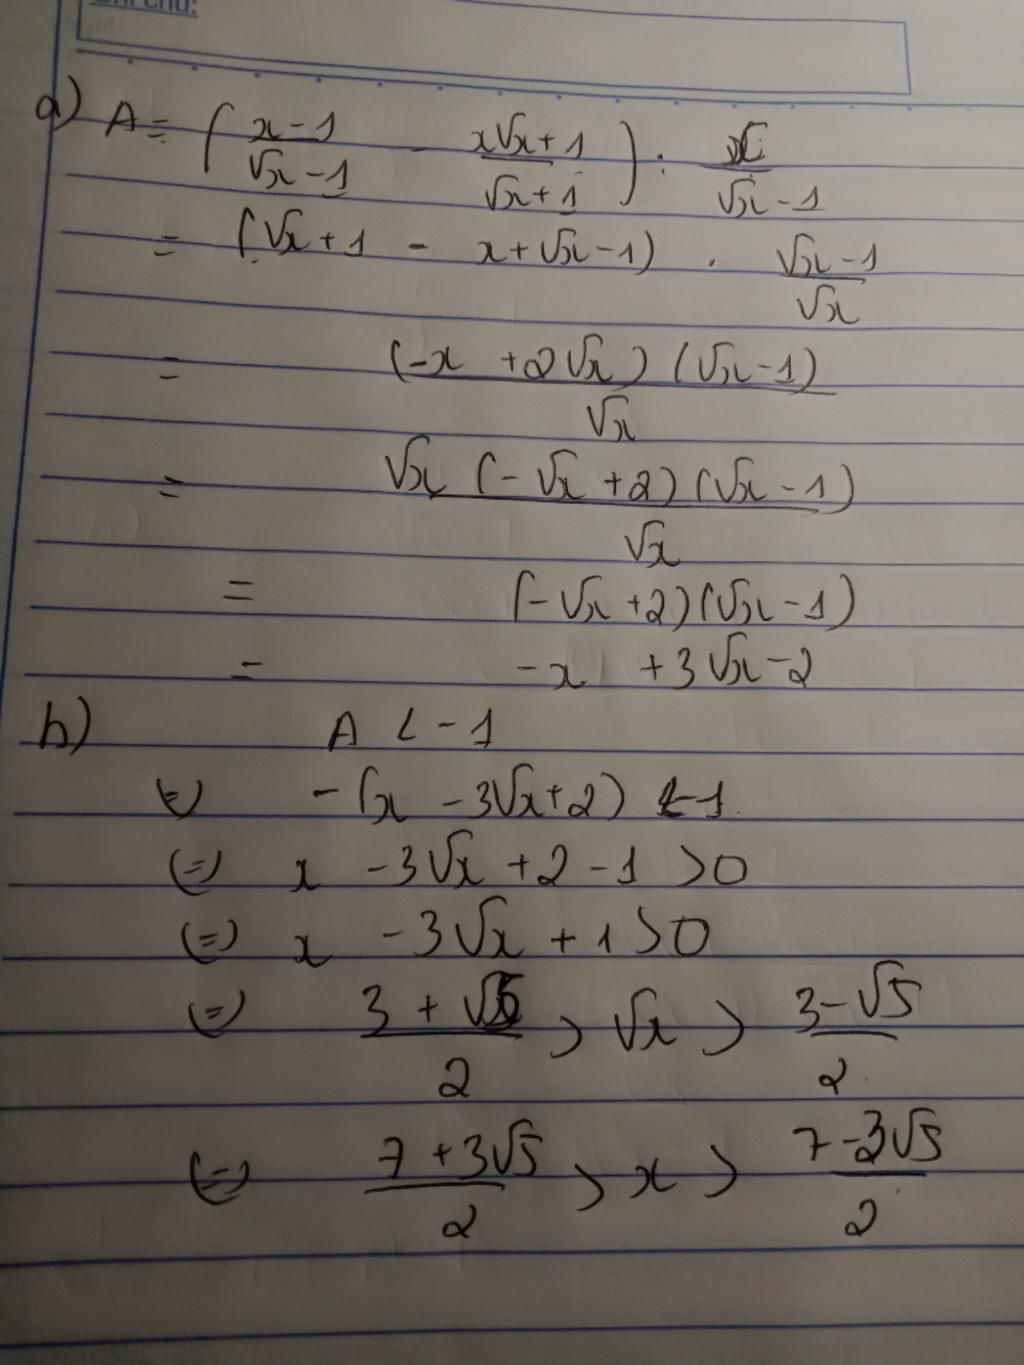 a) A = ( (x-1)/(√x-1) - (x√x+1)/(√x+1) ) : √x/(√x-1)
= (√x+1 - x+√x-1) . (√x-1)/√x
= (-x +2√x) (√x-1)/√x
= √x (-√x +2) (√x-1)/√x
= (-√x+2)(√x-1)
= -x +3√x-2
b) A < -1
(=) -(x -3√x+2) < -1
(=) x -3√x +2 -1 >0
(=) x -3√x +1 >0
(=) (3+√5)/2 > √x > (3-√5)/2
(=) (7+3√5)/2 > x > (7-3√5)/2